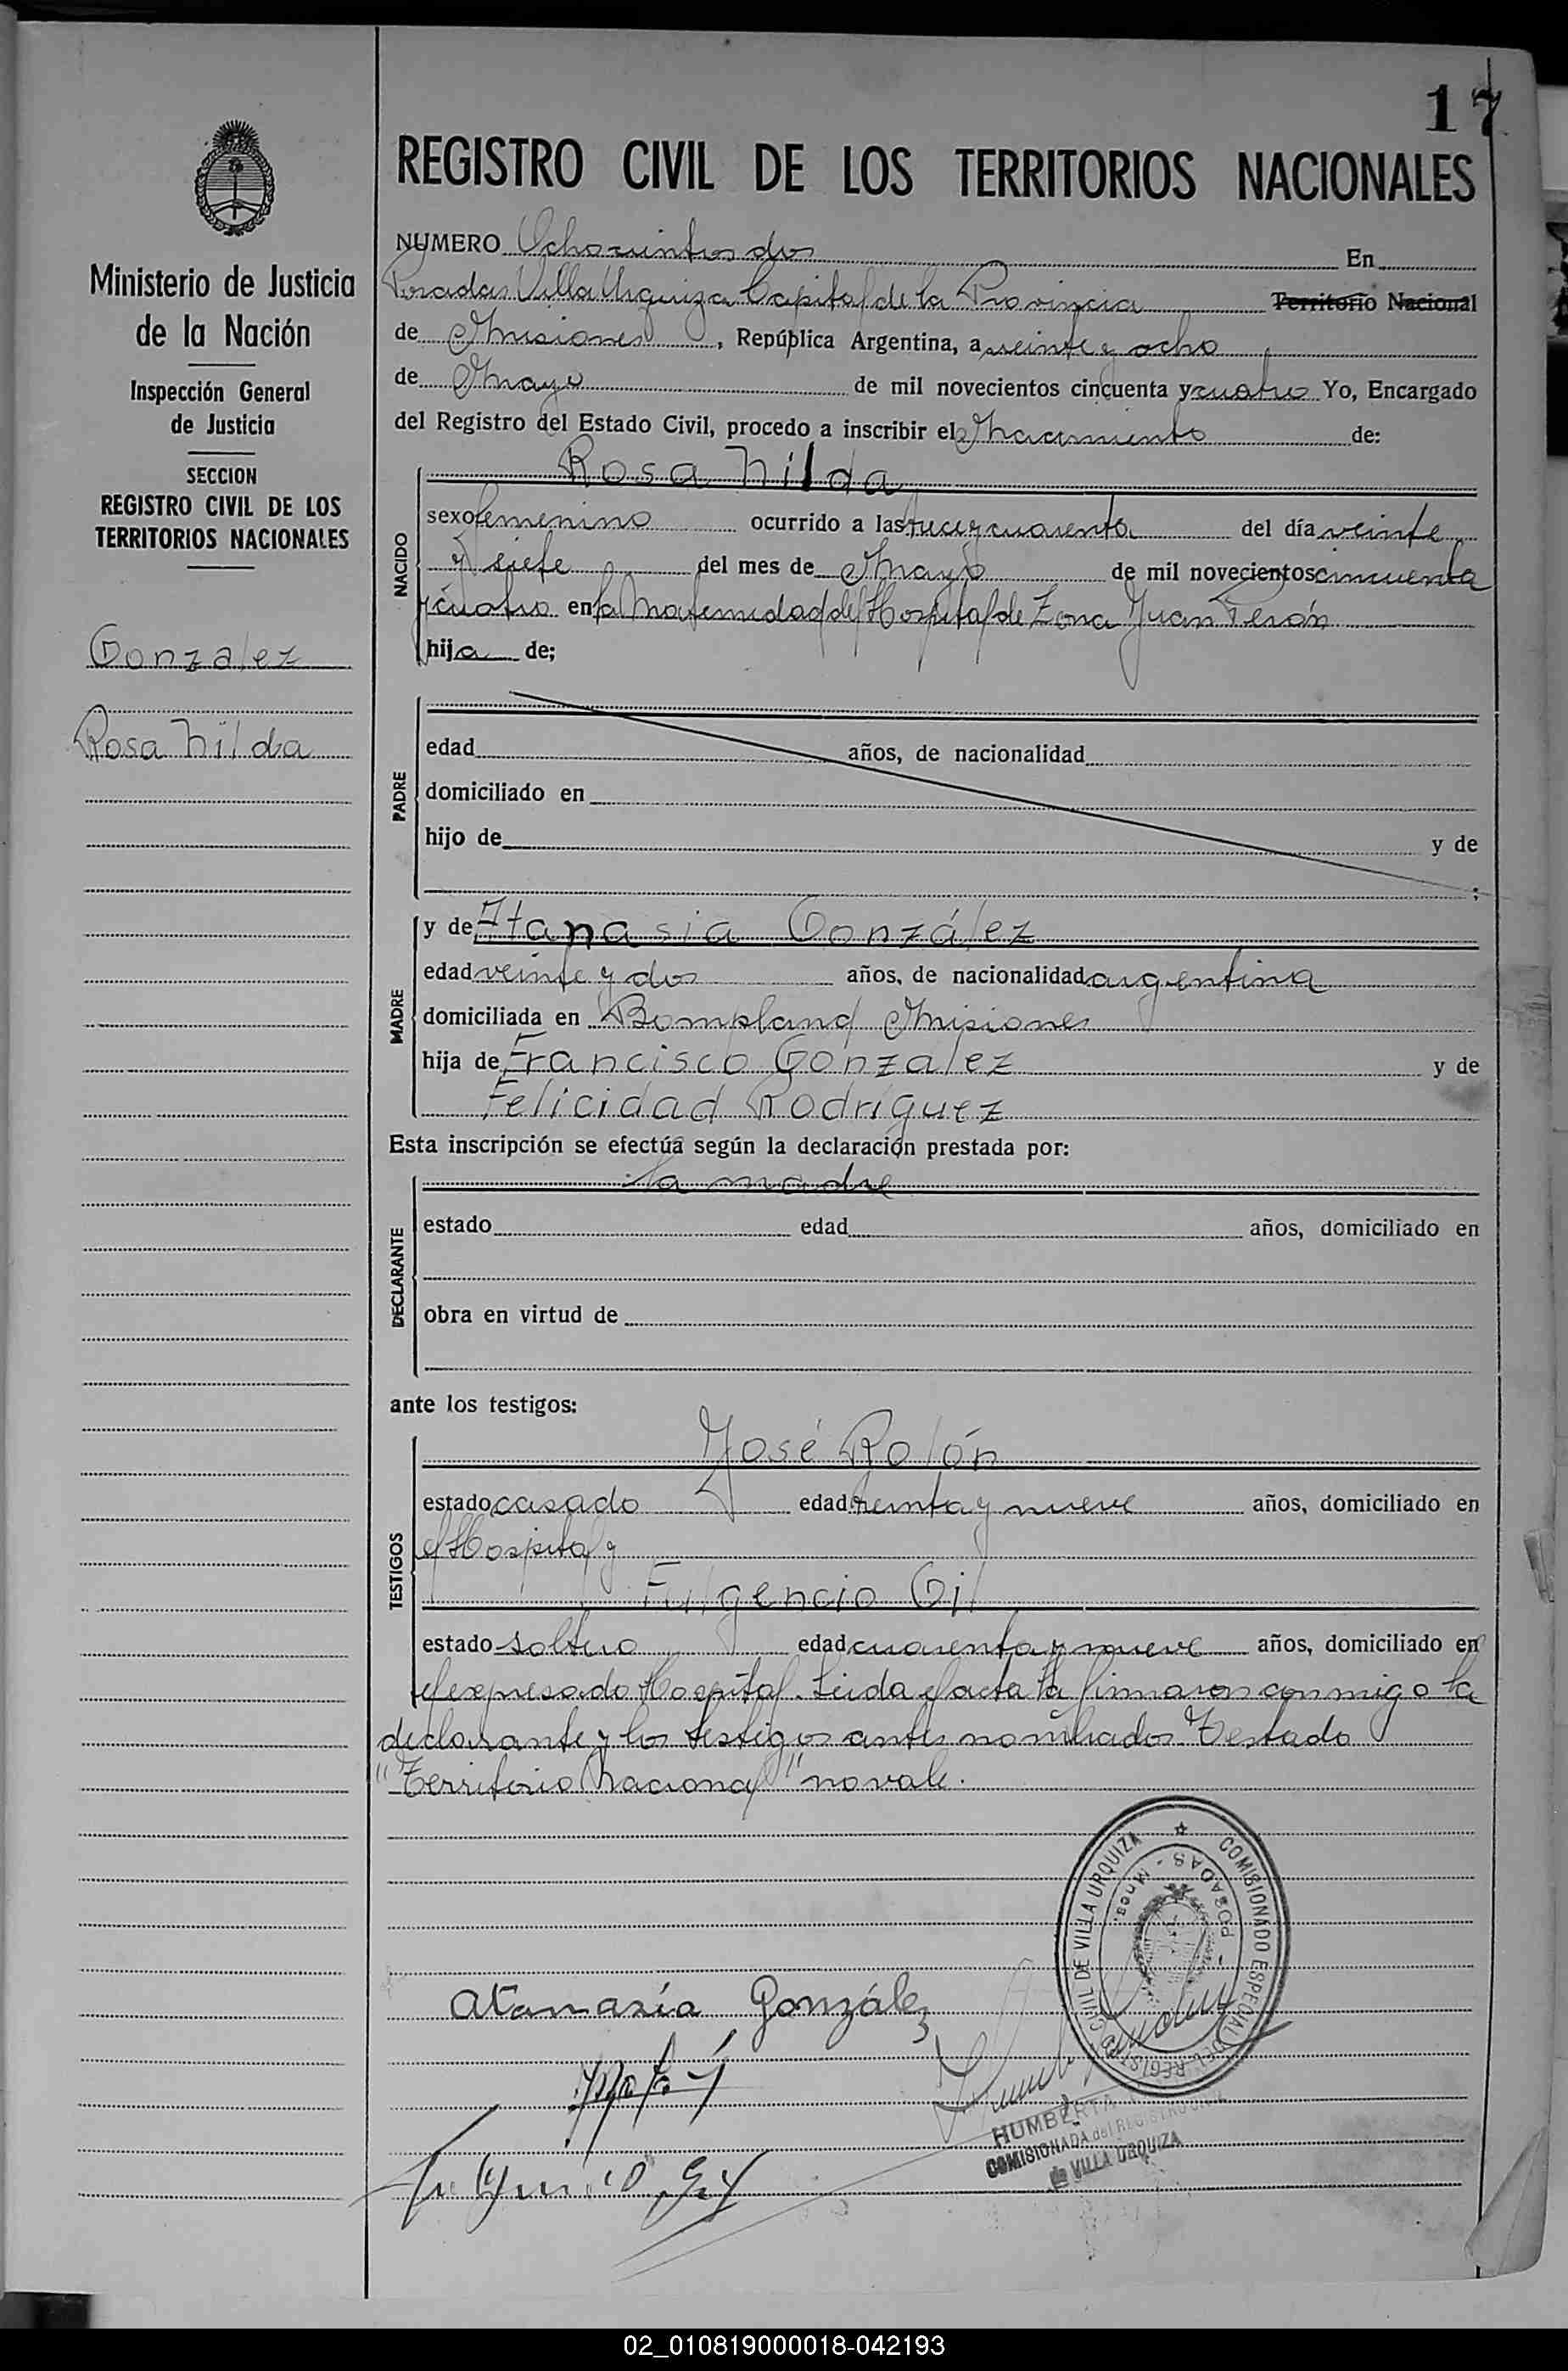 17
REGISTRO CIVIL DE LOS TERRITORIOS NACIONALES
Ministerio de Justicia
de la Nación
Inspección General
de Justicia
SECCION
REGISTRO CIVIL DE LOS
TERRITORIOS NACIONALES
Gonzalez
Rosa Nilda
NUMERO Ochocientos dos En
Posadas Villa Urquiza Capital de la Provincia Territorio Nacional
de Misiones, República Argentina, a veinte y ocho
de Mayo de mil novecientos cincuenta y cuatro Yo, Encargado
del Registro del Estado Civil, procedo a inscribir el Nacimiento de:
NACIDO
Rosa Nilda
sexo femenino ocurrido a las trece y cuarenta del día veinte
y siete del mes de Mayo de mil novecientos cincuenta
y cuatro en la Maternidad del Hospital de Zona Juan Perón
hija de;
PADRE
edad años, de nacionalidad
domiciliado en
hijo de y de
;
MADRE
y de Atanasia González
edad veinte y dos años, de nacionalidad argentina
domiciliada en Bompland Misiones
hija de Francisco Gonzalez y de
Felicidad Rodríguez
Esta inscripción se efectúa según la declaración prestada por:
DECLARANTE
la madre
estado edad años, domiciliado en
obra en virtud de
ante los testigos:
TESTIGOS
José Rolón
estado casado edad treinta y nueve años, domiciliado en
el Hospital y
Fulgencio Gil
estado soltero edad cuarenta y nueve años, domiciliado en
el expresado Hospital. Leida el acta la firmaron conmigo la
declarante y los testigos antes nombrados. Testado
"Territorio Nacional" no vale.
COMISIONADO ESPECIAL DEL REGISTRO CIVIL DE VILLA URQUIZA
POSADAS - Mnes.
Atanasia González
Fulgencio Gil
HUMBERTA
COMISIONADA del REGISTRO CIVIL
de VILLA URQUIZA
02_010819000018-042193